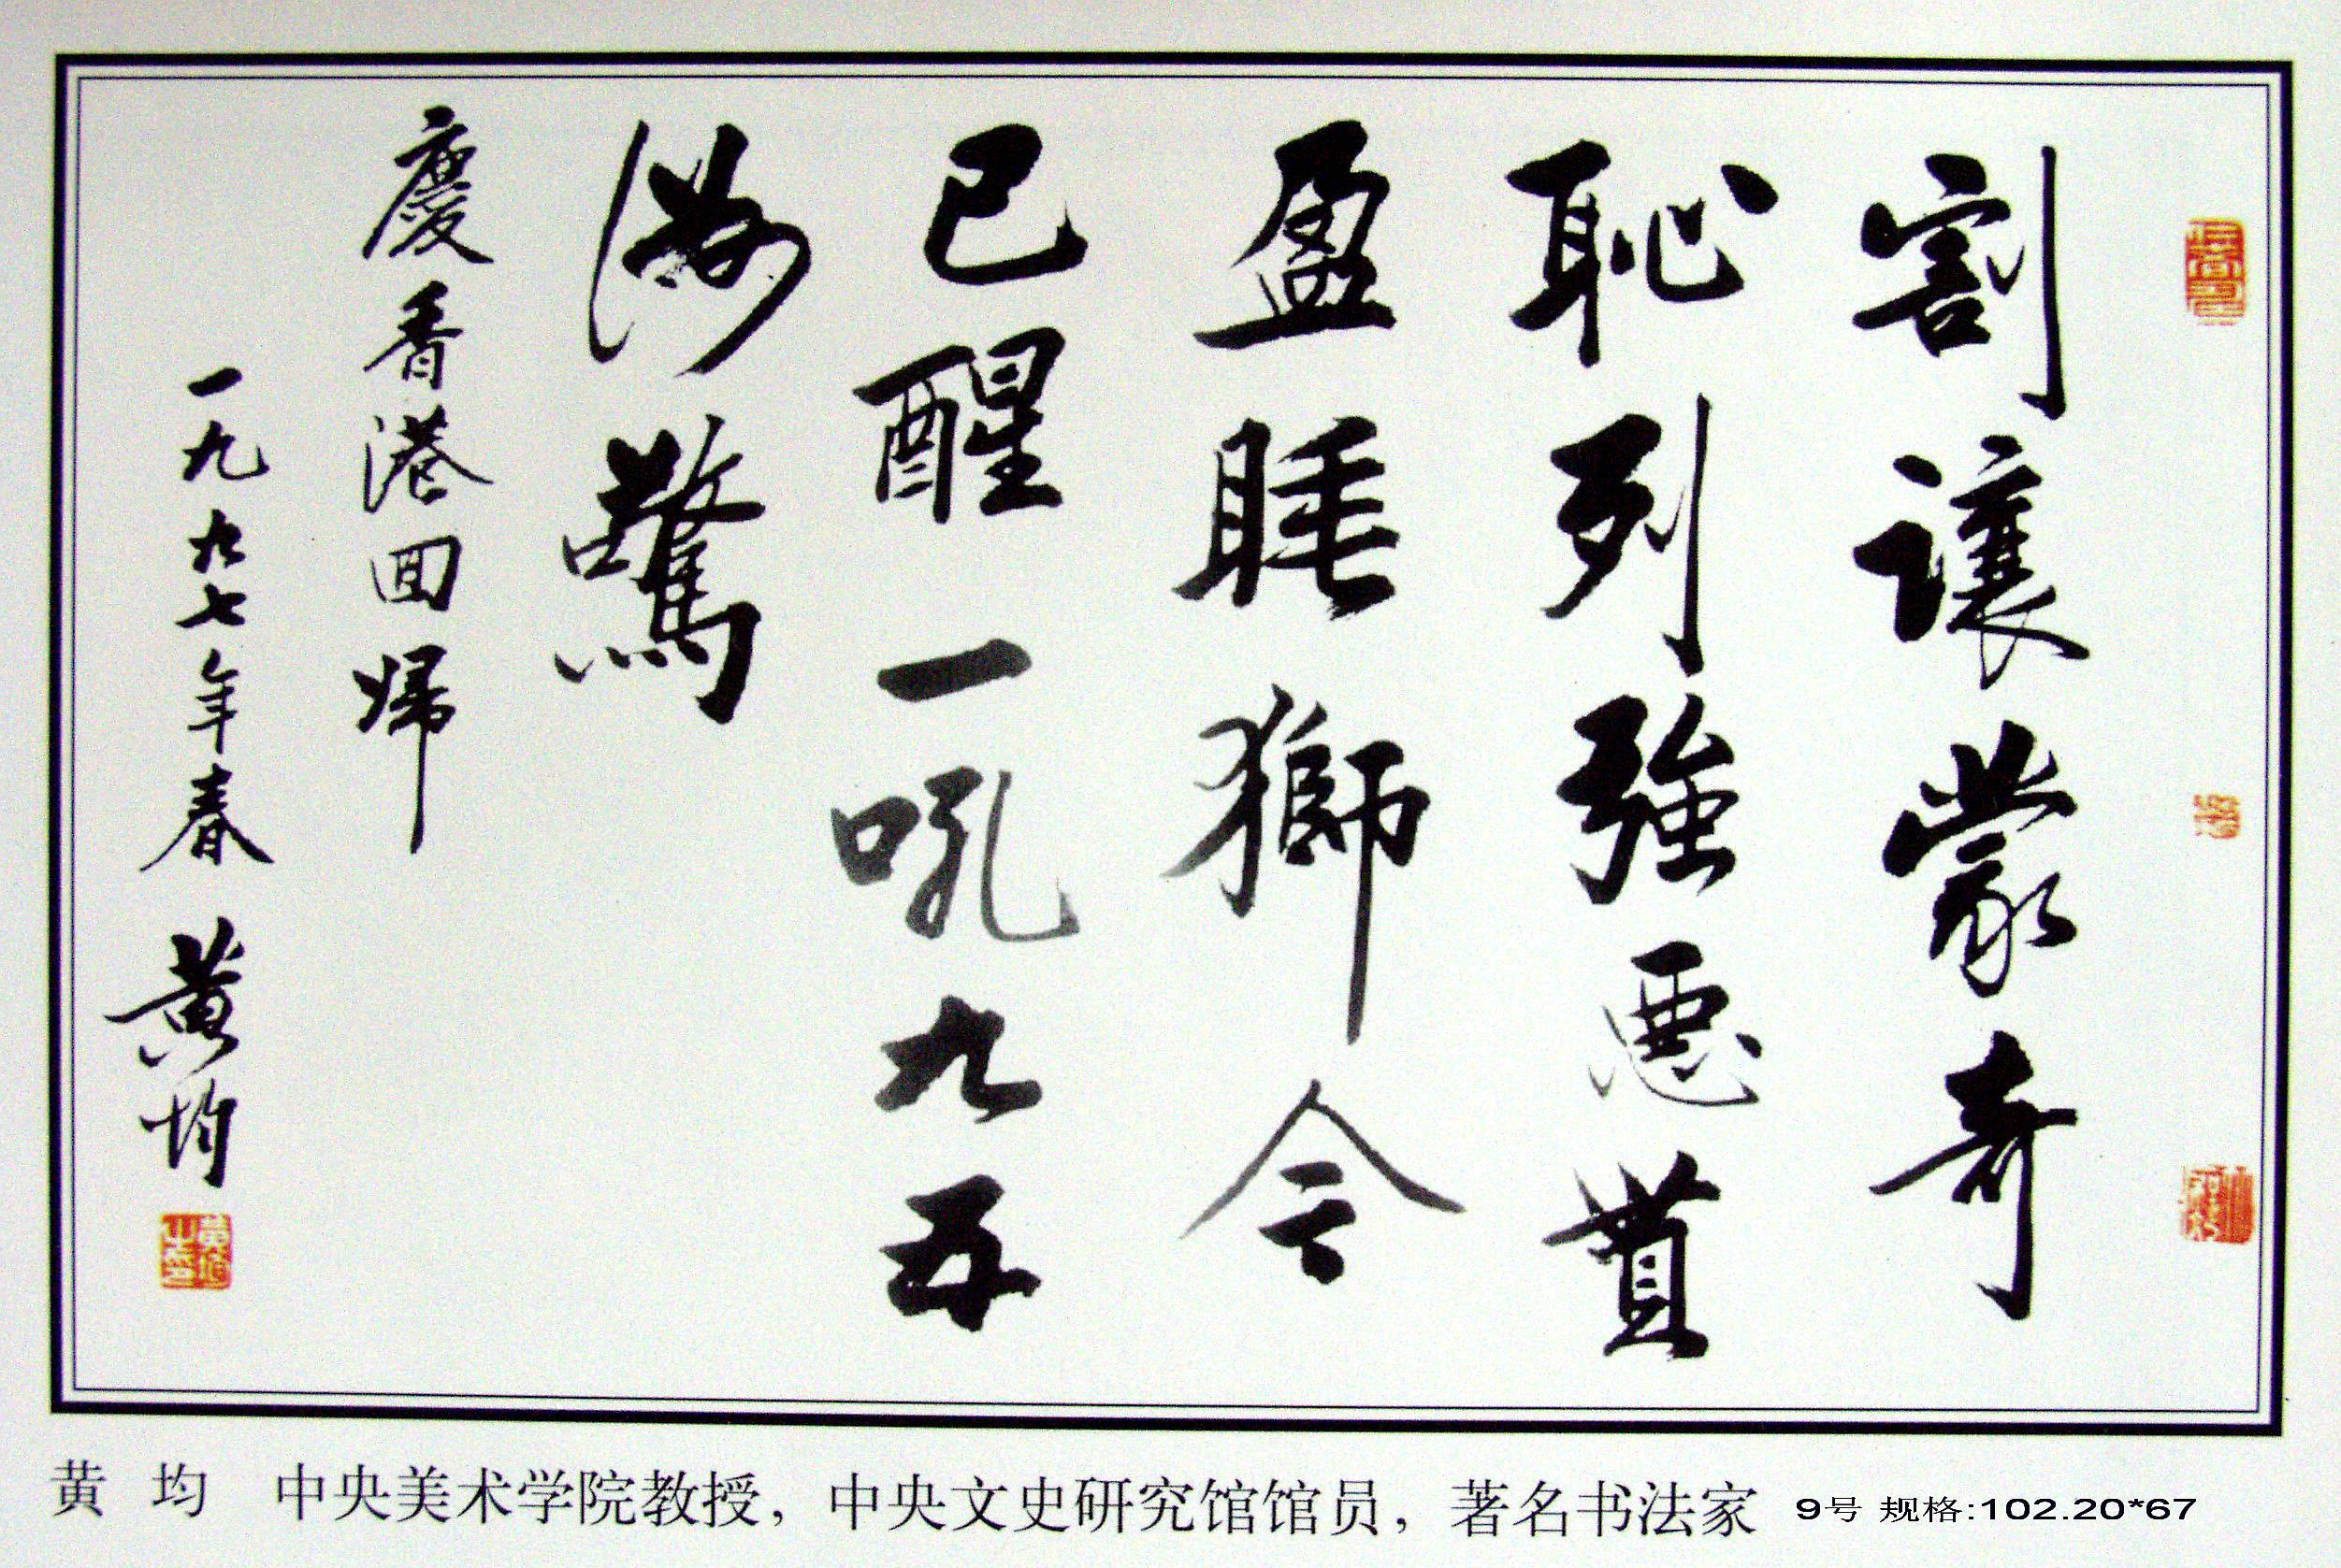 割讓蒙奇
恥列強惡貫
盈睡獅今
已醒一吼九五
驚
慶香港回歸
一九九七年春 黃均
黄 均 中央美术学院教授，中央文史研究馆馆员，著名书法家 9号 规格:102.20*67